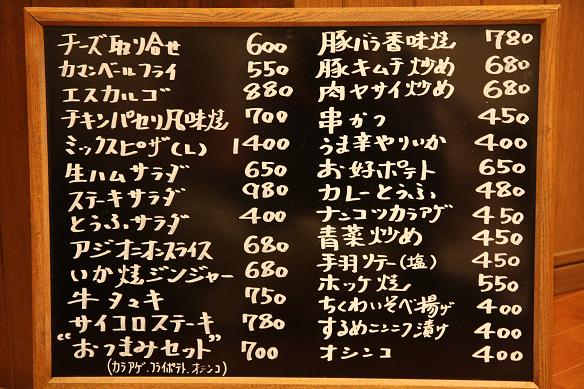 チーズ取り合せ 600
カマンベールフライ 550
エスカルゴ 880
チキンパセリ風味焼 700
ミックスピザ(L) 1400
生ハムサラダ 650
ステーキサラダ 980
とうふサラダ 400
アジオニオンスライス 680
いか焼ジンジャー 680
牛タタキ 750
サイコロステーキ 780
"おつまみセット" 700
(カラアゲ.フライポテト.オシンコ)
豚バラ香味焼 780
豚キムチ炒め 680
肉ヤサイ炒め 680
串かつ 450
うま辛やりいか 400
お好ポテト 650
カレーとうふ 480
ナンコツカラアゲ 450
青菜炒め 450
手羽ソテー(塩) 450
ホッケ焼 550
ちくわいそべ揚げ 400
するめニンニク漬け 400
オシンコ 400